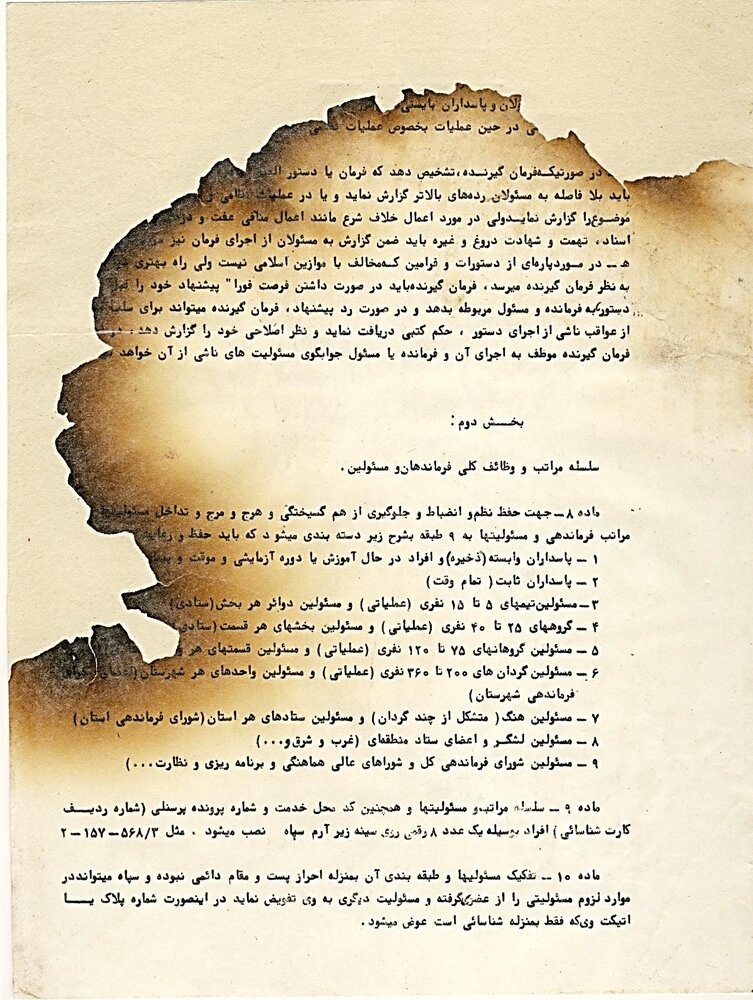 لان و پاسداران بایستی
در حین عملیات بخصوص عملیات
در صورتیکه‌فرمان گیرنده،تشخیص دهد که فرمان یا دستور
باید بلا فاصله به مسئولان رده‌های بالاتر گزارش نماید و یا در عملیات نظامی و
موضوع‌را گزارش نماید‌ولی در مورد اعمال خلاف شرع مانند اعمال منافی عفت و
اسناد، تهمت و شهادت دروغ و غیره باید ضمن گزارش به مسئولان از اجرای فرمان نیز
هـ ــ در مورد‌پاره‌ای از دستورات و فرامین که‌مخالف با موازین اسلامی نیست ولی راه بهتری
به نظر فرمان گیرنده میرسد، فرمان گیرنده‌باید در صورت داشتن فرصت فورا" پیشنهاد خود را
دستور‌به فرمانده و مسئول مربوطه بدهد و در صورت رد پیشنهاد، فرمان گیرنده میتواند برای
از عواقب ناشی از اجرای دستور ، حکم کتبی دریافت نماید و نظر اصلاحی خود را گزارش دهد،
فرمان گیرنده موظف به اجرای آن و فرمانده یا مسئول جوابگوی مسئولیت های ناشی از آن خواهد
بخش دوم:
سلسله مراتب و وظائف کلی فرماندهان‌و مسئولین.
ماده ۸ــ جهت حفظ نظم‌و انضباط و جلوگیری از هم گسیختگی و هرج و مرج و تداخل
مراتب فرماندهی و مسئولیتها به ۹ طبقه بشرح زیر دسته بندی میشود که باید حفظ و رعایت
۱ ــ پاسداران وابسته(ذخیره)و افراد در حال آموزش یا دوره آزمایشی و موقت و
۲ ــ پاسداران ثابت( تمام وقت)
۳ــ مسئولین‌تیمهای ۵ تا ۱۵ نفری (عملیاتی) و مسئولین دوائر هر بخش(ستادی)
۴ ــ گروههای ۲۵ تا ۴۰ نفری (عملیاتی ) و مسئولین بخشهای هر قسمت(ستادی
۵ ــ مسئولین گروهانهای ۷۵ تا ۱۲۰ نفری (عملیاتی) و مسئولین قسمتهای هر
۶ ــ مسئولین گردان های ۲۰۰ تا ۳۶۰ نفری (عملیاتی) و مسئولین واحدهای هر شهرستان
فرماندهی شهرستان)
۷ ــ مسئولین هنگ( متشکل از چند گردان) و مسئولین ستادهای هر استان(شورای فرماندهی استان)
۸ ــ مسئولین لشگر و اعضای ستاد منطقه‌ای (غرب و شرق‌و...)
۹ ــ مسئولین شورای فرماندهی کل و شوراهای عالی هماهنگی و برنامه ریزی و نظارت...)
ماده ۹ ــ سلسله مراتب‌و مسئولیتها و همچنین کد محل خدمت و شماره پرونده پرسنلی (شماره ردیف
کارت شناسائی) افراد بوسیله یک عدد ۸ رقمی روی سینه زیر آرم سپاه نصب میشود . مثل ۵۶۸/۳ــ۱۵۷ــ۲
ماده ۱۰ ــ تفکیک مسئولیها و طبقه بندی آن بمنزله احراز پست و مقام دائمی نبوده و سپاه میتوانددر
موارد لزوم مسئولیتی را از عضوی‌گرفته و مسئولیت دیگری به وی تفویض نماید در اینصورت شماره پلاک یا
اتیکت وی‌که فقط بمنزله شناسائی است عوض میشود.